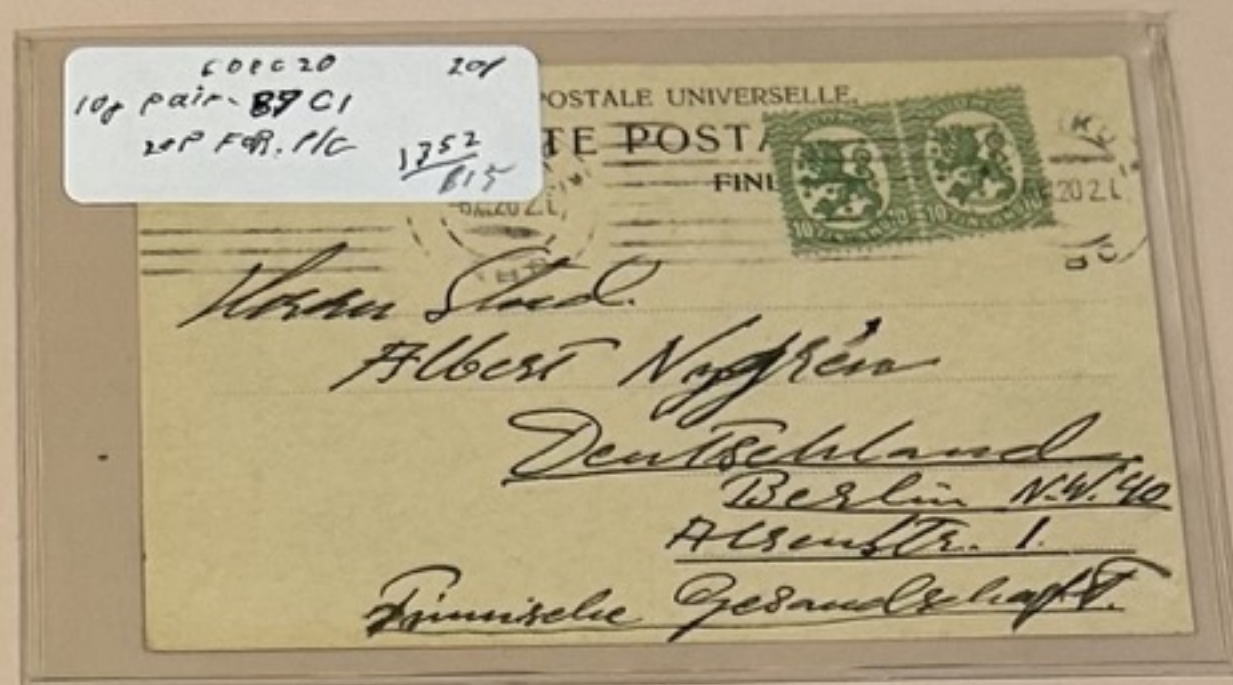 6DEC20 20P
10P pair - 87 C1
20P FOR. P/C
1352
B15
POSTALE UNIVERSELLE.
TE POSTA
FINL
10 10 10
20 2.
.20 2.
Herrn Stud.
Albert Nygrén
Deutschland
Berlin N.W. 40
Alsenstr. 1.
Finnische Gesandschaft.